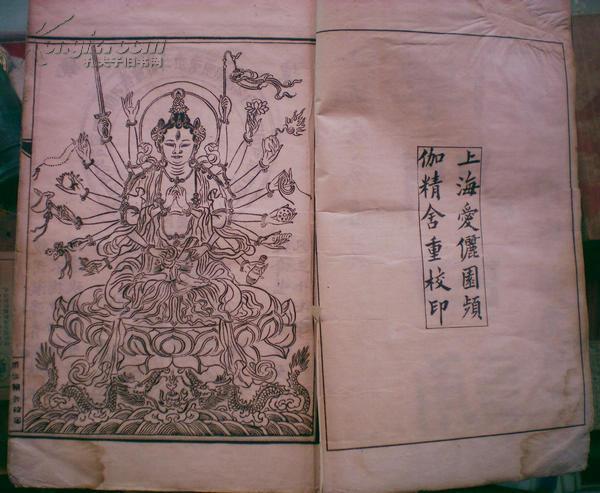 上海愛儷園頻
伽精舍重校印
kongfz.com
孔夫子旧书网